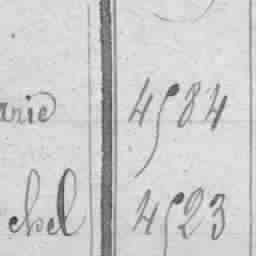 arie 4584
chel 4523